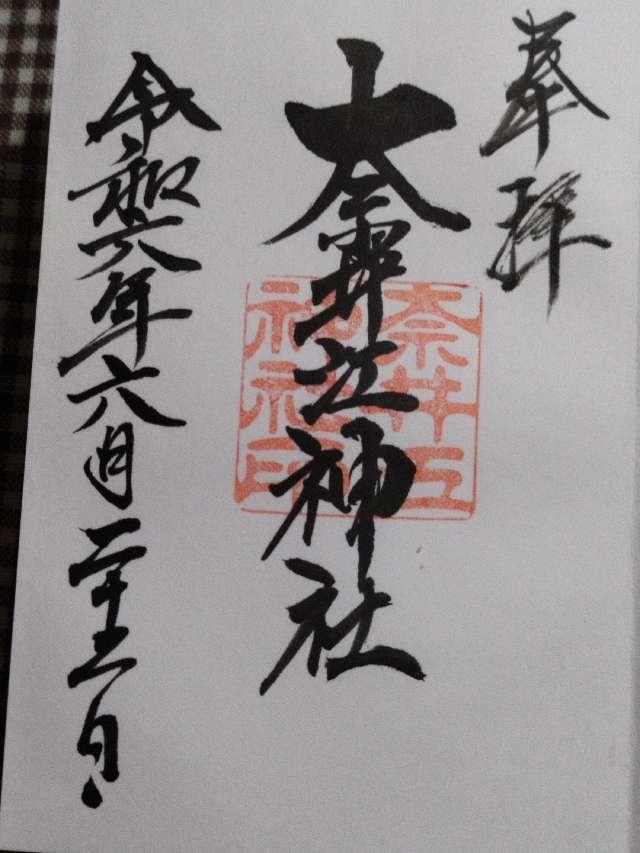 奉拝
奈井江神社
奈井江
神社印
令和六年六月二十三日